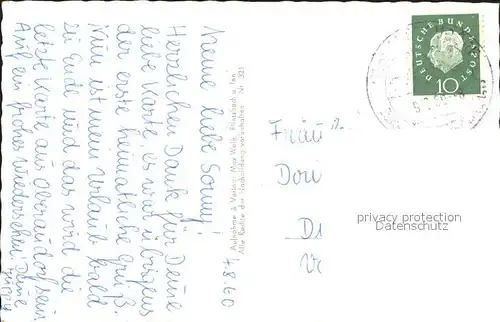 4.8.60
Meine liebe Sonny!
Herzlichen Dank für Deine
liebe Karte, es war übrigens
der erste heimatliche Gruß.
Nun ist mein Urlaub bald
zu Ende und das wird die
letzte Karte aus Oberaudorf sein
Auf ein frohes Wiedersehen! Deine
Aufnahme u. Verlag: Max Weiß, Flintsbach a. Inn
Alle Rechte der Nachbildung vorbehalten Nr. 321
DEUTSCHE BUNDESPOST
10
Fräu
Dori
D
privacy protection
Datenschutz